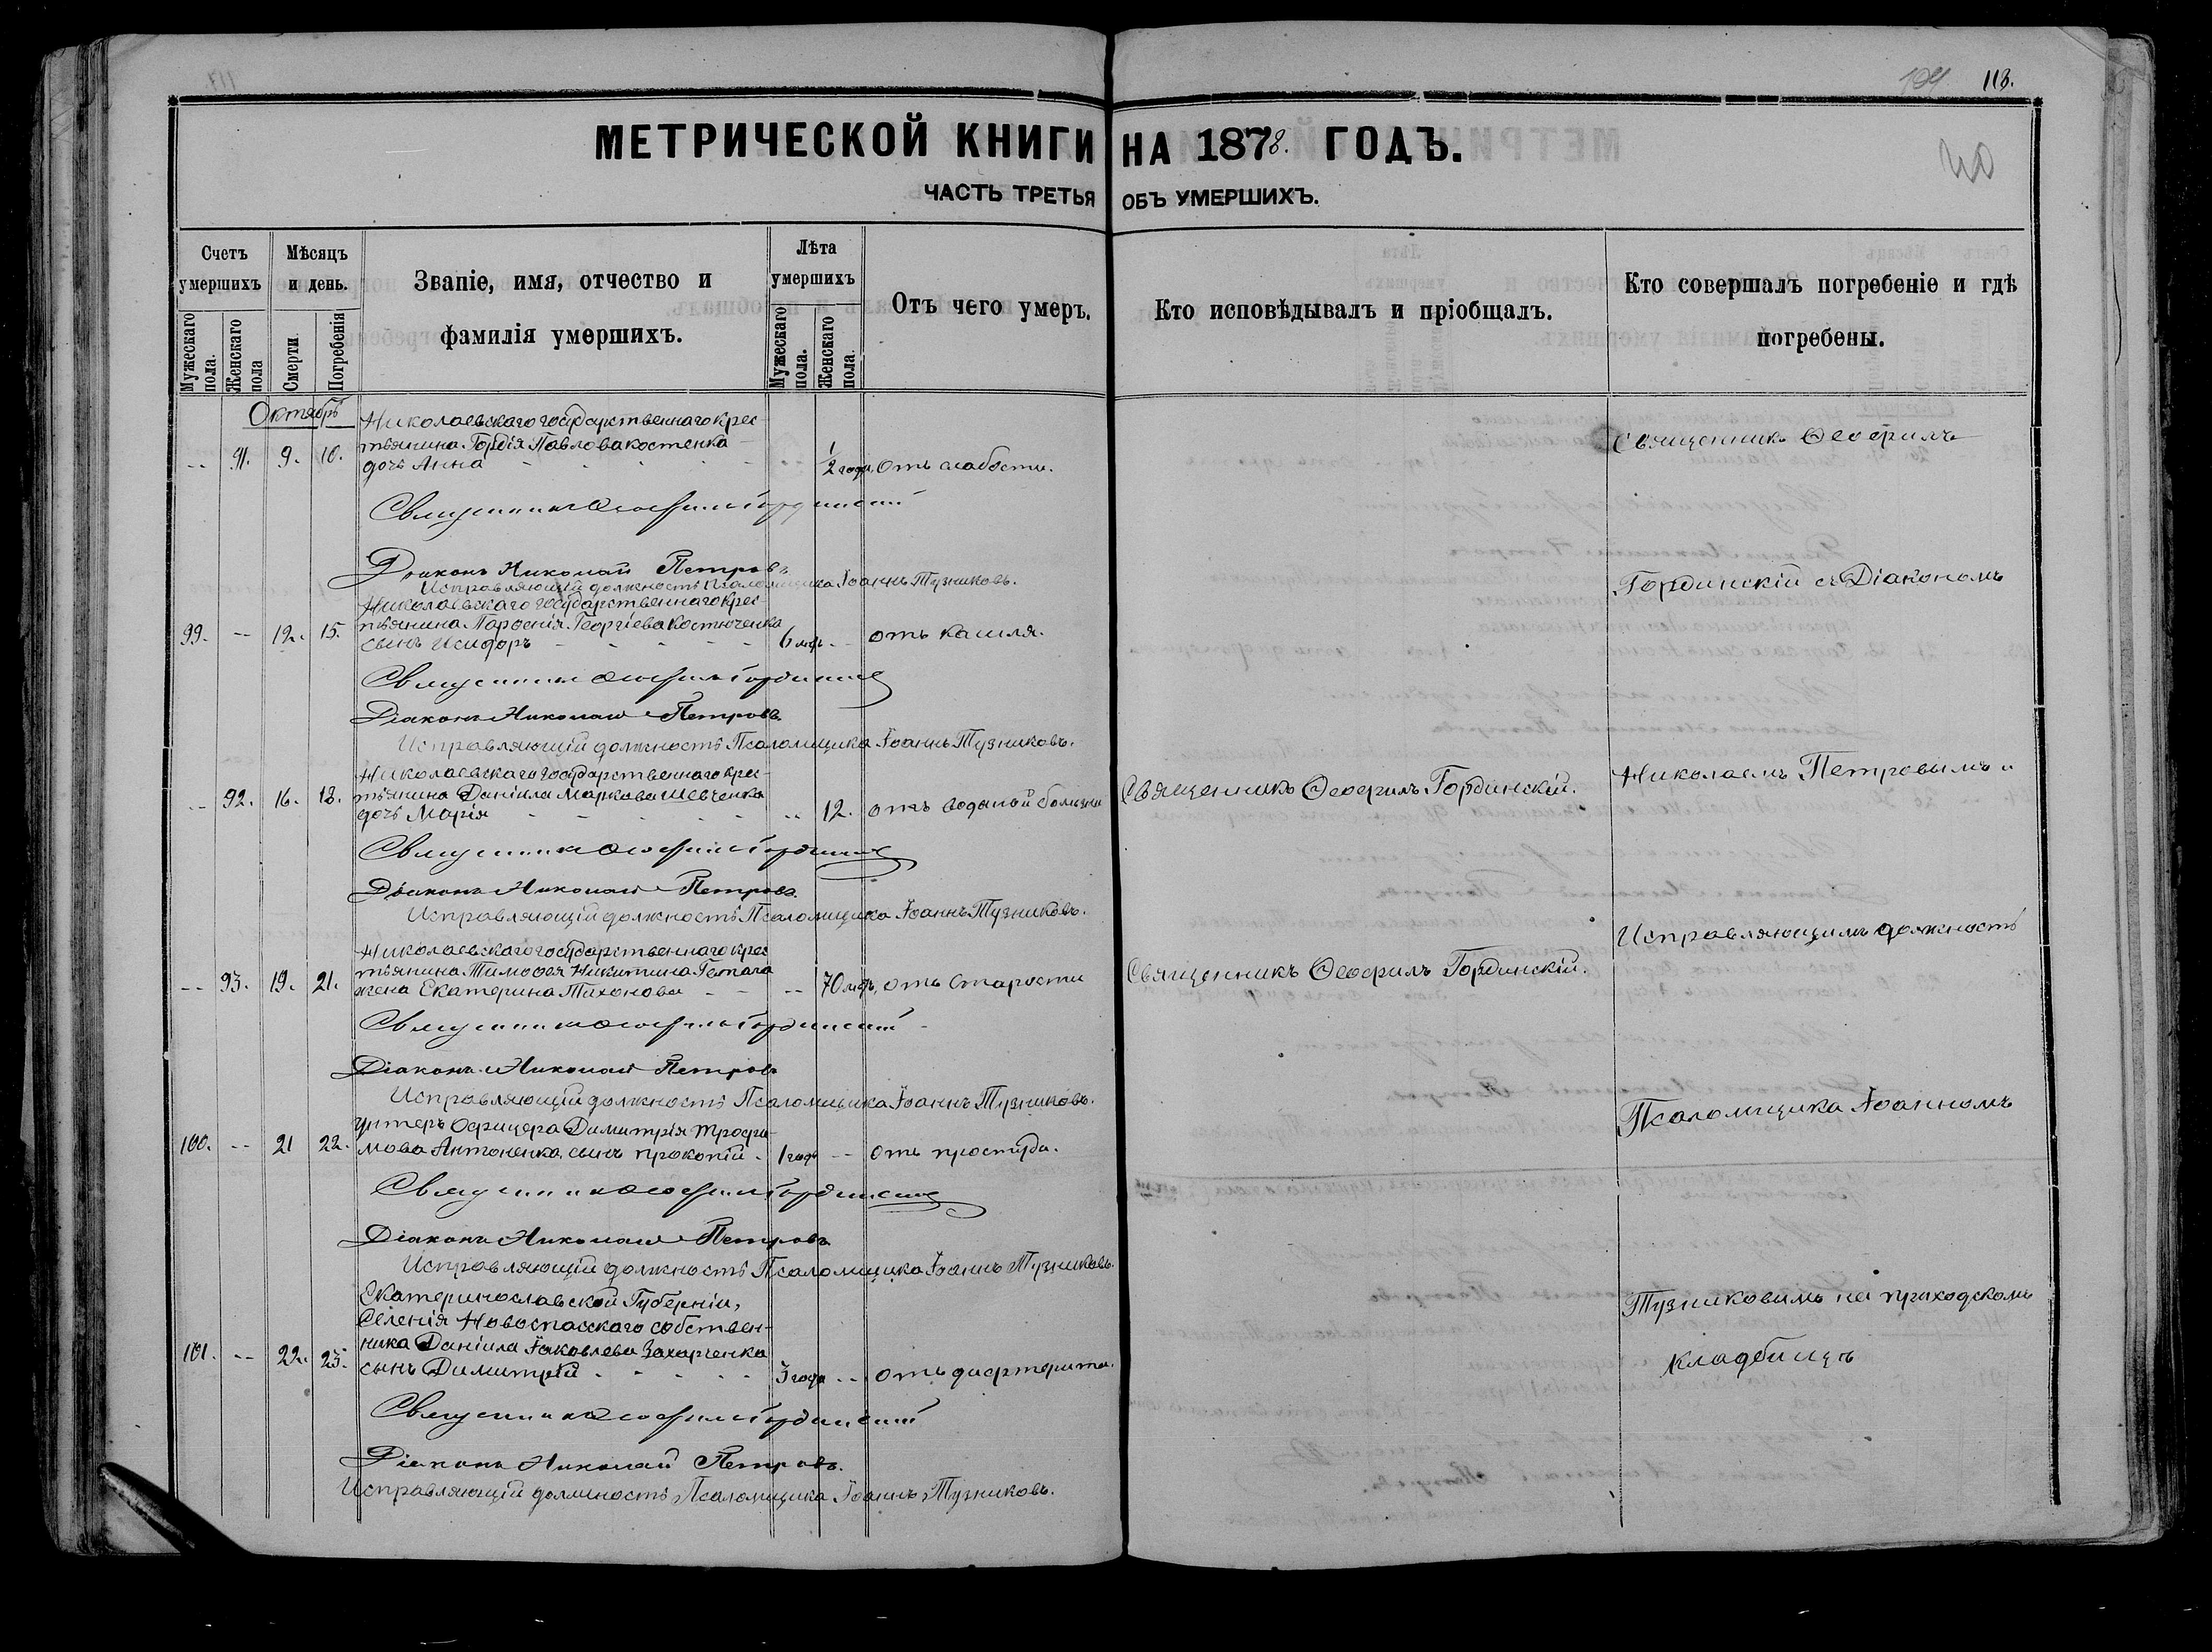 104 113.
МЕТРИЧЕСКОЙ КНИГИ НА 1878. ГОДЪ.
ЧАСТЬ ТРЕТЬЯ ОБЪ УМЕРШИХЪ.
Счетъ умершихъ
Мужескаго пола.
Женскаго пола
Мѣсяцъ и день.
Смерти
Погребенія
Званіе, имя, отчество и
фамилія умершихъ.
Лѣта умершихъ
Мужескаго пола.
Женскаго пола.
Отъ чего умеръ.
Кто исповѣдывалъ и пріобщалъ.
Кто совершалъ погребеніе и гдѣ
погребены.
Октябрь
Николаевскаго государственнаго крес-
91. 9. 10. тьянина Гордія Павлова Костенка
дочь Анна ½ года, отъ слабости.
Священникъ Ѳеофилъ Гординскій
Діаконъ Николай Петровъ
Исправляющій должность Псаломщика Іоаннъ Тузниковъ.
Николаевскаго государственнаго крес-
99. 12. 15. тьянина Парѳенія Георгіева Костюченка
сынъ Исидоръ 6 лѣтъ отъ кашля.
Священникъ Ѳеофилъ Гординскій
Діаконъ Николай Петровъ.
Исправляющій должность Псаломщика Іоаннъ Тузниковъ.
Николаевскаго государственнаго крес-
92. 16. 18. тьянина Даніила Маркова Шевченка
дочь Марія 12. отъ водяной болезни Священникъ Ѳеофилъ Гординскій.
Священникъ Ѳеофилъ Гординскій
Діаконъ Николай Петровъ.
Исправляющій должность Псаломщика Іоаннъ Тузниковъ.
Николаевскаго государственнаго крес-
93. 19. 21. тьянина Тимоѳея Никитина
жена Екатерина Тихонова 70 лѣтъ, отъ старости Священникъ Ѳеофилъ Гординскій.
Священникъ Ѳеофилъ Гординскій
Діаконъ Николай Петровъ
Исправляющій должность Псаломщика Іоаннъ Тузниковъ.
Унтеръ Офицера Димитрія Трофи-
100. 21 22. мова Антоненка, сынъ Прокопій 1 годъ отъ простуды.
Священникъ Ѳеофилъ Гординскій
Діаконъ Николай Петровъ
Исправляющій должность Псаломщика Іоаннъ Тузниковъ.
Екатеринославской Губерніи,
Селенія Новоспасскаго собствен-
101. 22. 23. ника Даніила Іаковлева Захарченка
сынъ Димитрій 3 года отъ дифтерита.
Священникъ Ѳеофилъ Гординскій
Діаконъ Николай Петровъ.
Исправляющій должность Псаломщика Іоаннъ Тузниковъ.
Священникъ Ѳеофилъ
Гординскій съ Діакономъ
Николаемъ Петровымъ и
Исправляющимъ должность
Псаломщика Іоанномъ
Тузниковымъ на приходскомъ
кладбищѣ